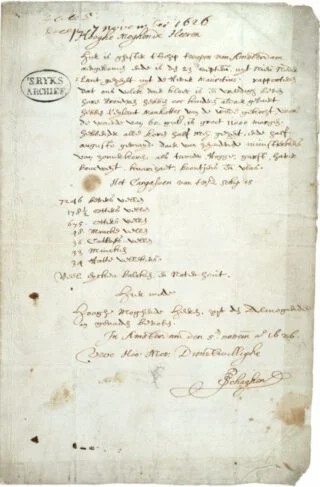 7 november 1626
S'RYKS
ARCHIEF
Hooghe Moghende Heeren
Hier is ghister t'schip t'wapen van Amsterdam
aengekomen ende is den 23en septem. uyt Nieu Neder
lant geseylt uyt de Rivier Mauritius. rapporteren
dat ons volck daer kloeck is en vreedigh leven
hare Vrouwen hebben ooc kinderen aldaer gebaert
hebben t'eylant Manhattes van de wilde gekocht, voor
de waerde van 60 guld. is groot 11000 morgen.
hebbende alle koren half mey geseyt, ende half
augusto gemayt. Daer van zeynden munsterkens
van zomerkoren, als tarwe, Rogge, garst, haver
boucweyt, knarizaet, boontjens en vlas.
Het Cargasoen van tsz schip is
7246 bevers vellen
178½ otters vellen
675 otters vellen
48 Minckes vellen
36 Catloes vellen
33 Mincken
34 Ratte vellekens
Veel eycken balcken, en Noten hout.
Hier mede
Hooghe Moghende Heeren, zyt den Almogende
in genade bevolen.
In Amsterdam den 5en novem ao 1626.
Uwer Hoo: Moo: Dienstwillighe
P Schaghen